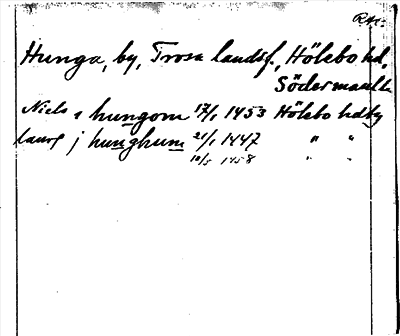 Hunga, by, Trosa landsf., Hölebo hd,
Södermanl.
Niels i hungom 17/1 1453 Hölebo hdby
laurs j hunghum 21/1 1447 " "
10/5 1458 " "